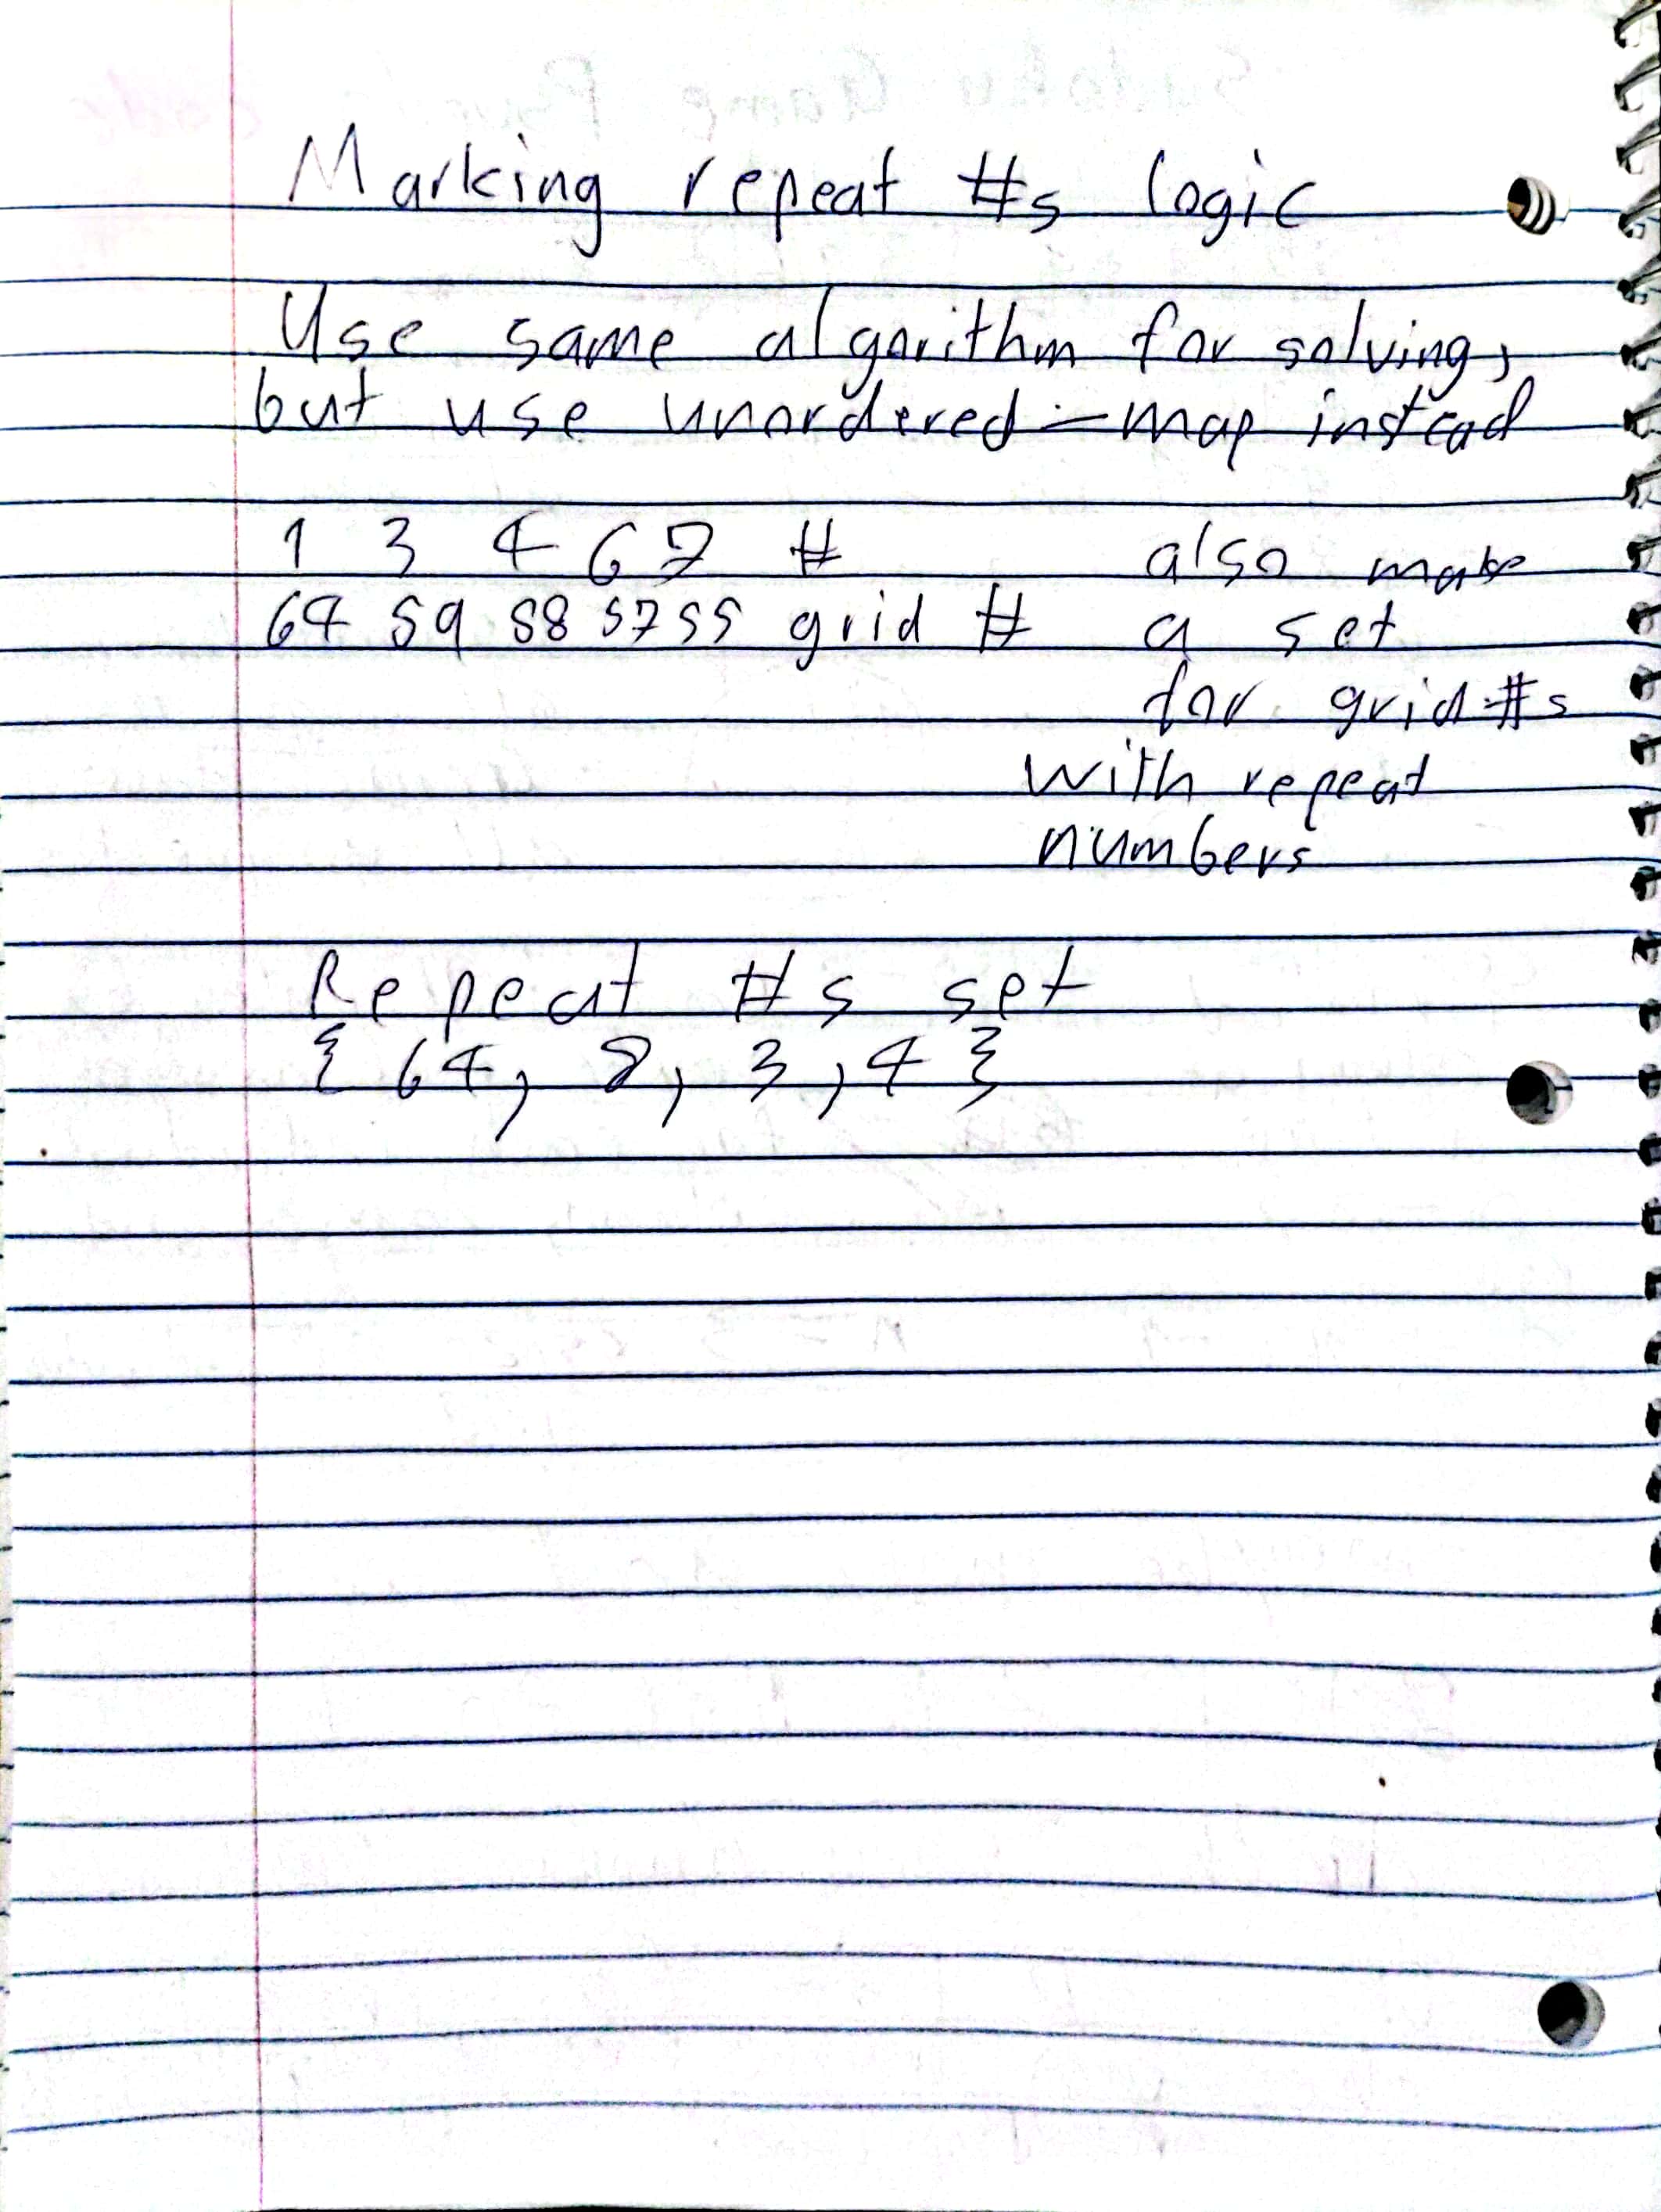 Marking repeat #s logic
Use same algorithm for solving,
but use unordered_map instead
1 3 4 6 7 #
64 59 58 57 55 grid #
also make
a set
for grid #s
with repeat
numbers
Repeat #s set
{ 64, 8, 3, 4 }